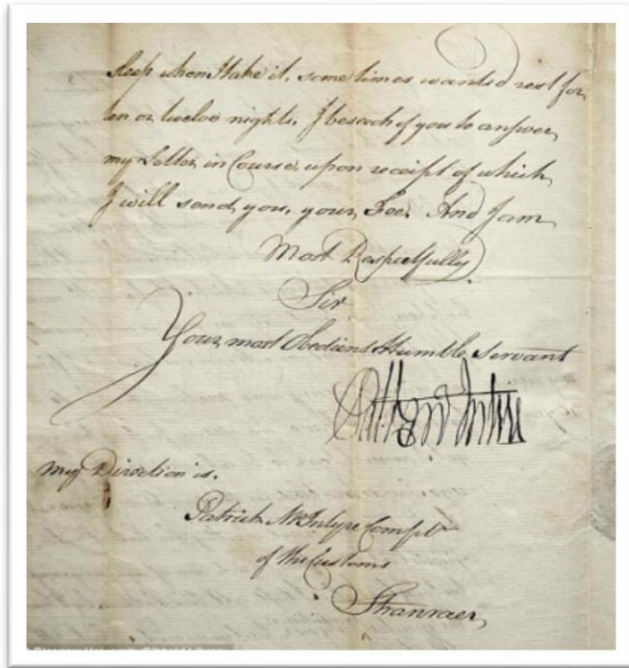 sleep when I take it, some times wanted rest for
ten or twelve nights. I beseech of you to answer
my Letter in Course, upon receipt of which
I will send you, your Fee. And I am
Most Respectfully
Sir
Your most Obedient Humble Servant
My Direction is.
Patrick McIntyre Compt
of the Customs
Stranraer